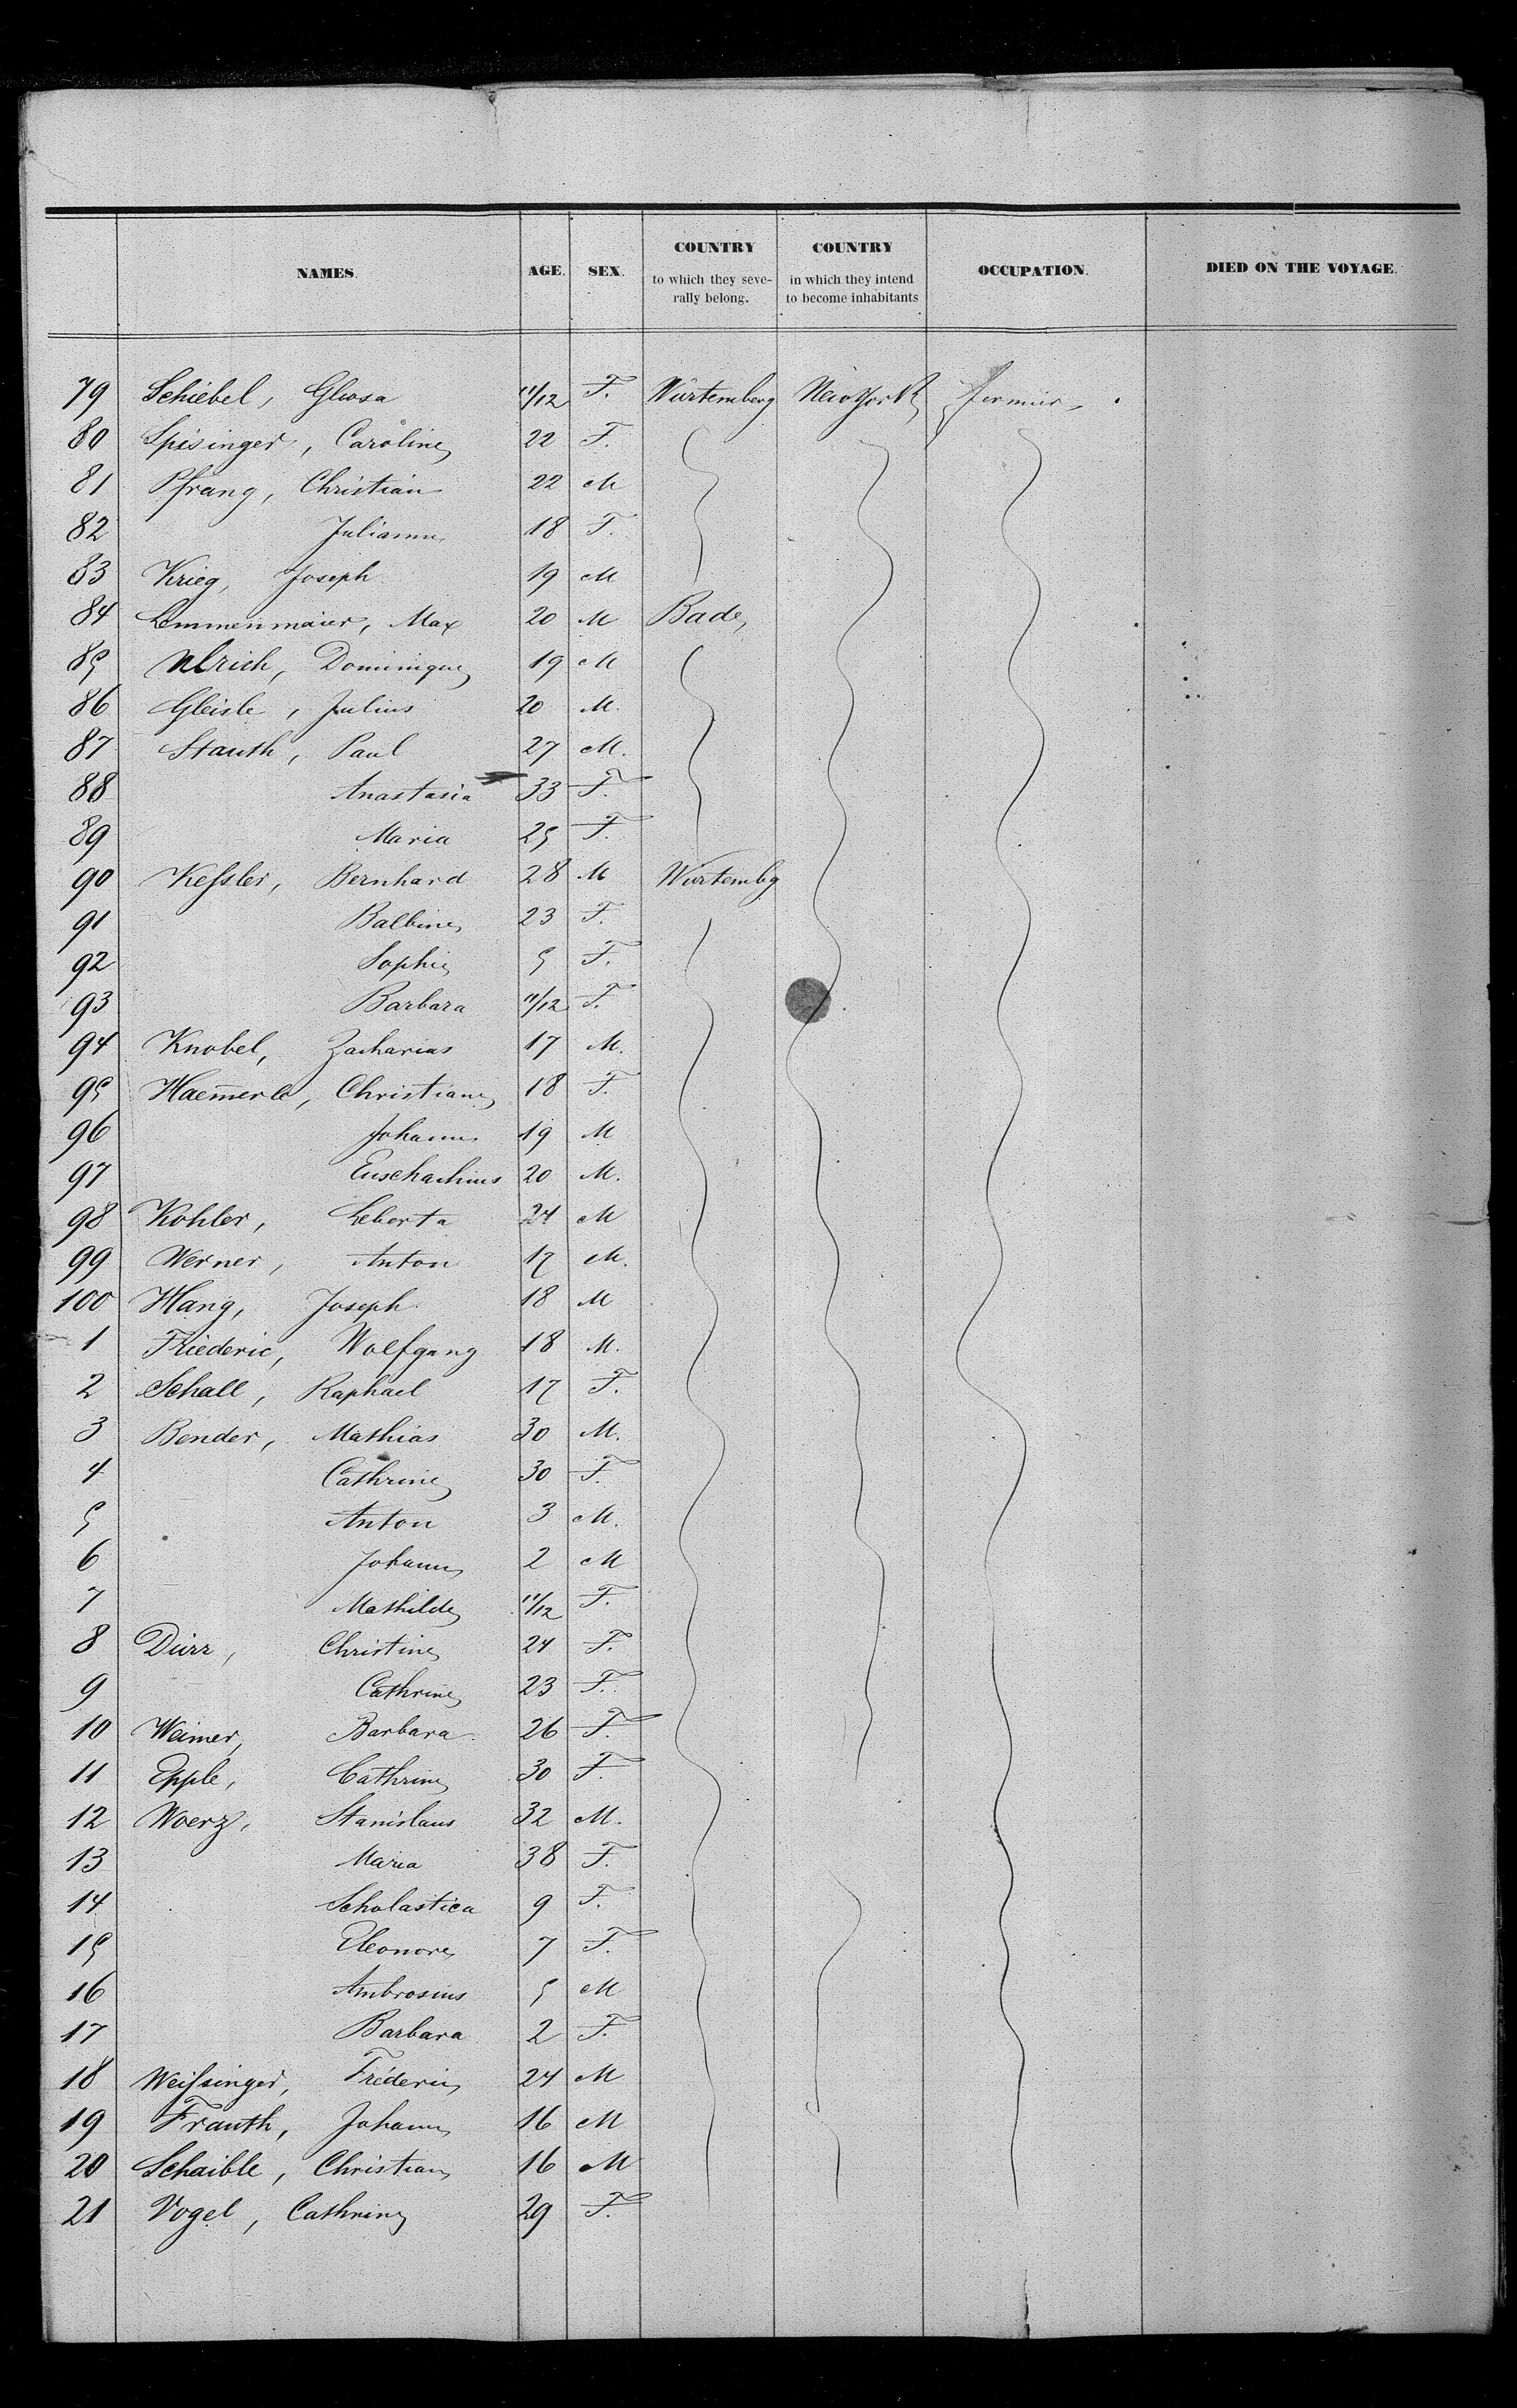 NAMES. AGE. SEX. COUNTRY to which they seve- rally belong. COUNTRY in which they intend to become inhabitants OCCUPATION. DIED ON THE VOYAGE.
79 Schiebel, 11/12 F. Würtemberg New York
80 Spisinger, Caroline 22 F.
81 Pfrang, Christian 22 M
82 Julianne 18 F.
83 Krieg, Joseph 19 M
84 Lemmenmaier, Max 20 M Bade
85 Ulrich, Dominique 19 M
86 Gleisle, Julius 20 M.
87 Stauth, Paul 27 M.
88 Anastasia 33 F.
89 Maria 25 F.
90 Kessler, Bernhard 28 M Würtembg
91 Balbine 23 F.
92 Sophie 5 F.
93 Barbara 11/12 F.
94 Knobel, Zacharias 17 M.
95 Haem̄erle, Christiane 18 F.
96 Johann 19 M
97 20 M.
98 Kohler, Leberta 24 M
99 Werner, Anton 17 M.
100 Hang, Joseph 18 M
1 Friederic, Wolfgang 18 M.
2 Schall, Raphael 17 F.
3 Bender, Mathias 30 M.
4 Cathrine 30 F.
5 Anton 3 M.
6 Johann 2 M
7 Mathilde 11/12 F.
8 Dürr, Christine 24 F.
9 Cathrine 23 F.
10 Weimer, Barbara 26 F.
11 Epple, Cathrine 30 F.
12 Woerz, Stanislaus 32 M.
13 Maria 38 F.
14 Scholastica 9 F.
15 Eleonore 7 F.
16 Ambrosius 5 M
17 Barbara 2 F.
18 Weissinger, Fréderic 24 M
19 Frauth, Johann 16 M
20 Schaible, Christian 16 M
21 Vogel, Cathrine 29 F.